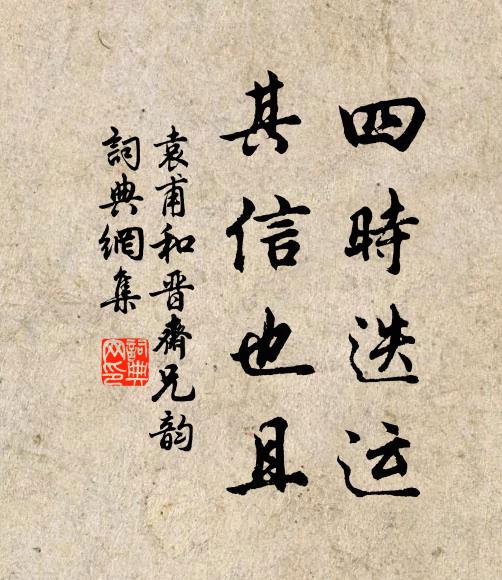 四時迭运
其信也且
袁甫和晋齋兄韵
詞典網集
詞典
网印